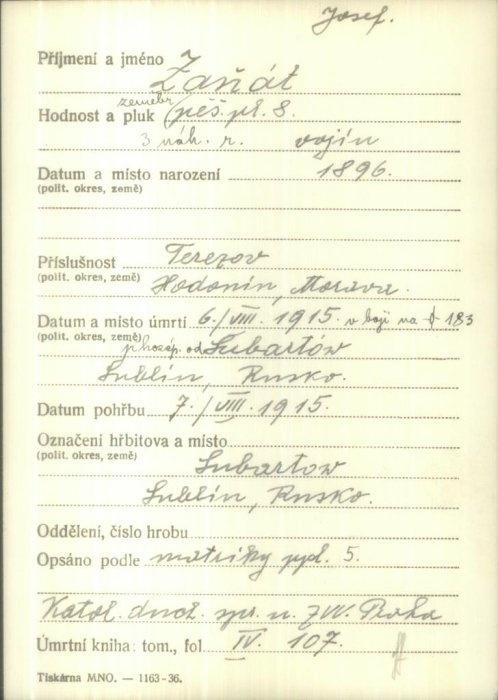 Josef.
Příjmení a jméno Zaňát
Hodnost a pluk zeměbr. pěš. pl. 8.
3 náh. r. vojín
Datum a místo narození 1896.
(polit. okres, země)
Příslušnost Terezov
(polit. okres, země) Hodonín, Morava.
Datum a místo úmrtí 6./VIII. 1915. v boji na 183
(polit. okres, země) od Lubartów
Lublín, Rusko.
Datum pohřbu 7./VIII. 1915.
Označení hřbitova a místo
(polit. okres, země)
Lubartow
Lublín, Rusko.
Oddělení, číslo hrobu
Opsáno podle matriky ppl. 5.
Katol. duch. spr. u ZVV. Praha
Úmrtní kniha: tom., fol IV. 107.
Tiskárna MNO. — 1163-36.